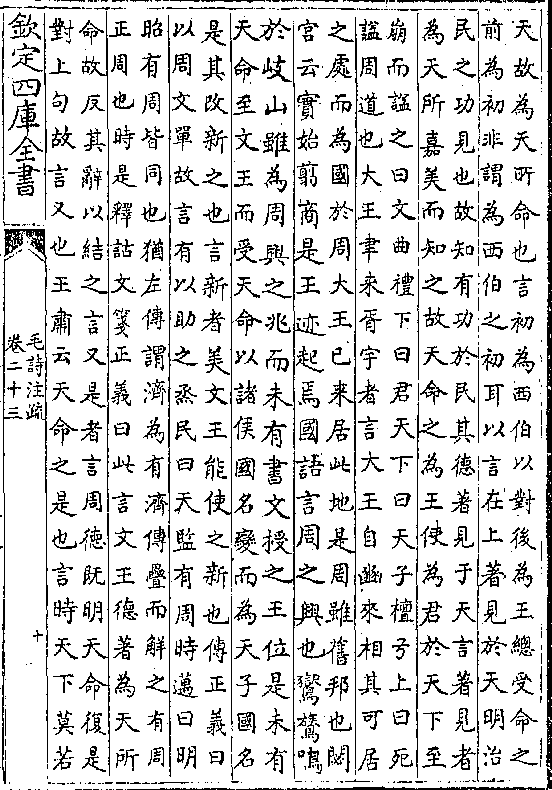 天故為天所命也言初為西伯以對後為王總受命之
前為初非謂為西伯之初耳以言在上著見於天明治
民之功見也故知有功於民其德著見于天言著見者
為天所嘉美而知之故天命之為王使為君於天下至
崩而諡之曰文曲禮下曰君天下曰天子檀弓上曰死
諡周道也大王聿來胥宇者言大王自豳來相其可居
之處而為國於周大王已來居此地是周雖舊邦也閟
宮云實始翦商是王迹起焉國語言周之興也鸑鷟鳴
於岐山雖為周興之兆而未有書文授之王位是未有
天命至文王而受天命以諸侯國名變而為天子國名
是其改新之也言新者美文王能使之新也傳正義曰
以周文單故言有以助之烝民曰天監有周時邁曰明
昭有周皆同也猶左傳謂濟為有濟傳疊而解之有周
正周也時是釋詁文箋正義曰此言文王德著為天所
命故反其辭以結之言又是者言周德既明天命復是
對上句故言又也王肅云天命之是也言時天下莫若
欽定四庫全書
毛詩注疏
卷二十三
十